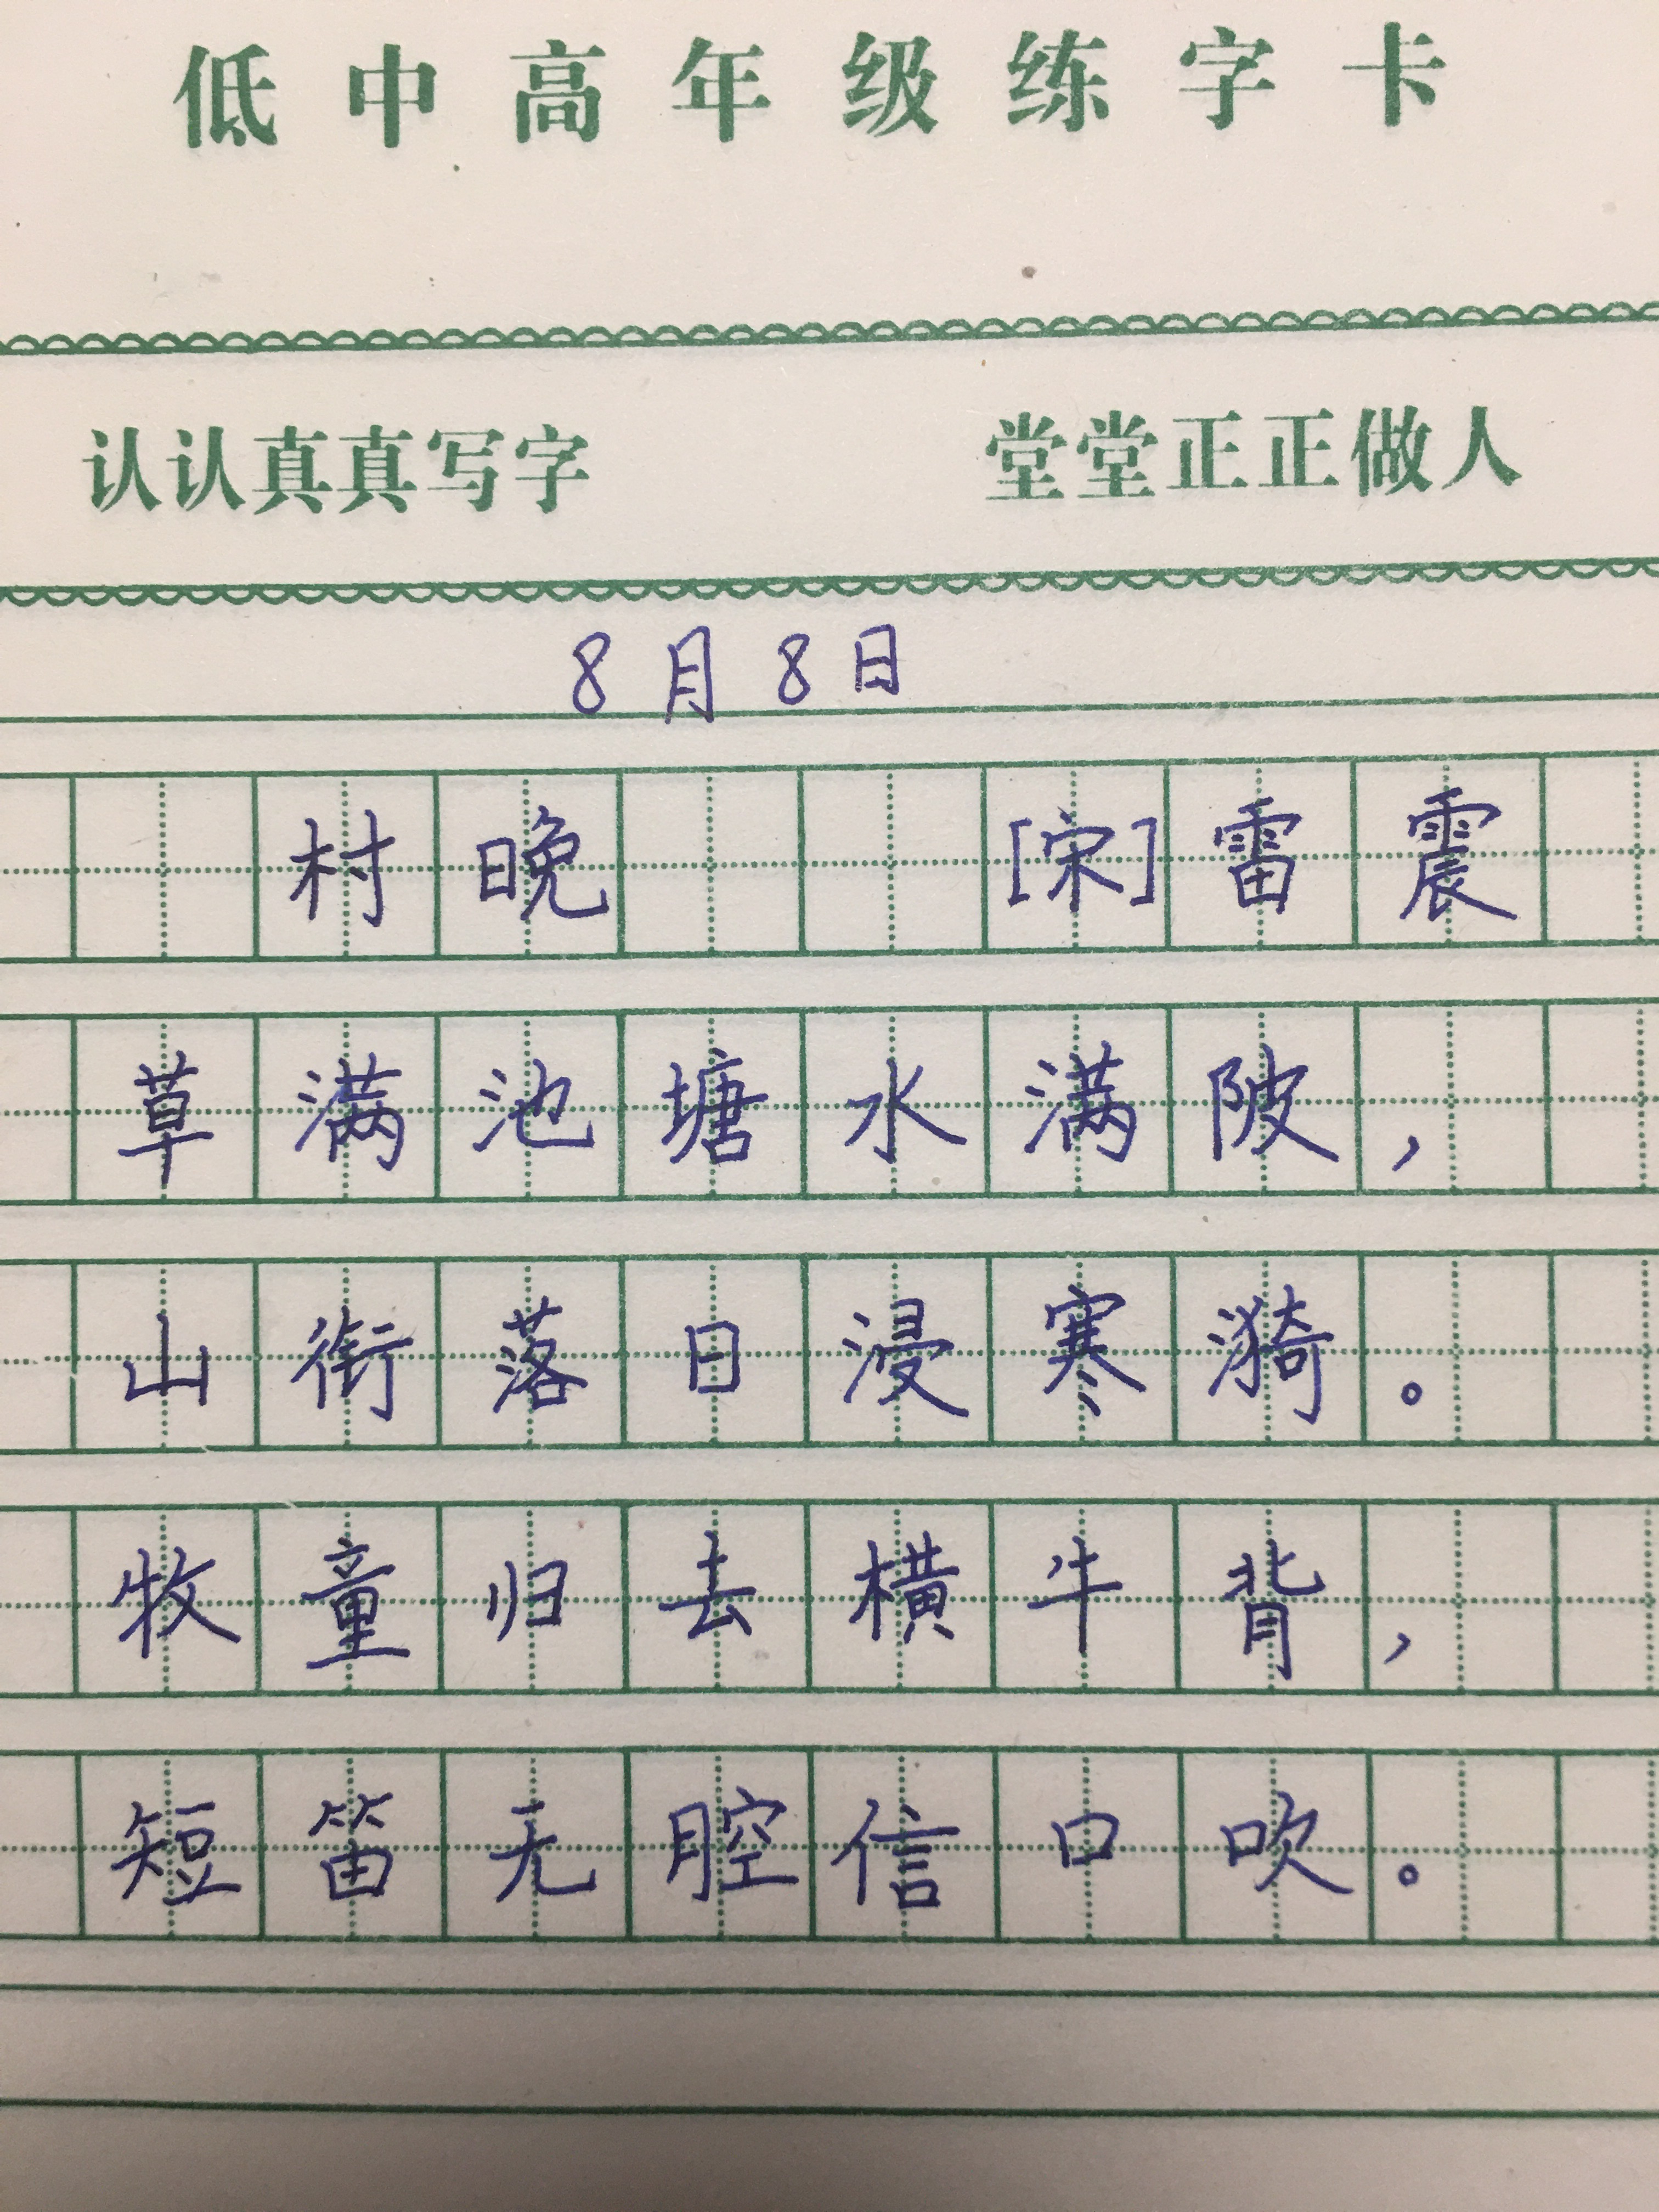 低中高年级练字卡
认认真真写字 堂堂正正做人
8月8日
村晚 [宋]雷震
草满池塘水满陂，
山衔落日浸寒漪。
牧童归去横牛背，
短笛无腔信口吹。